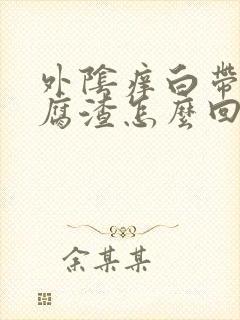 外陰痒白帶
腐渣怎麼回
余某某